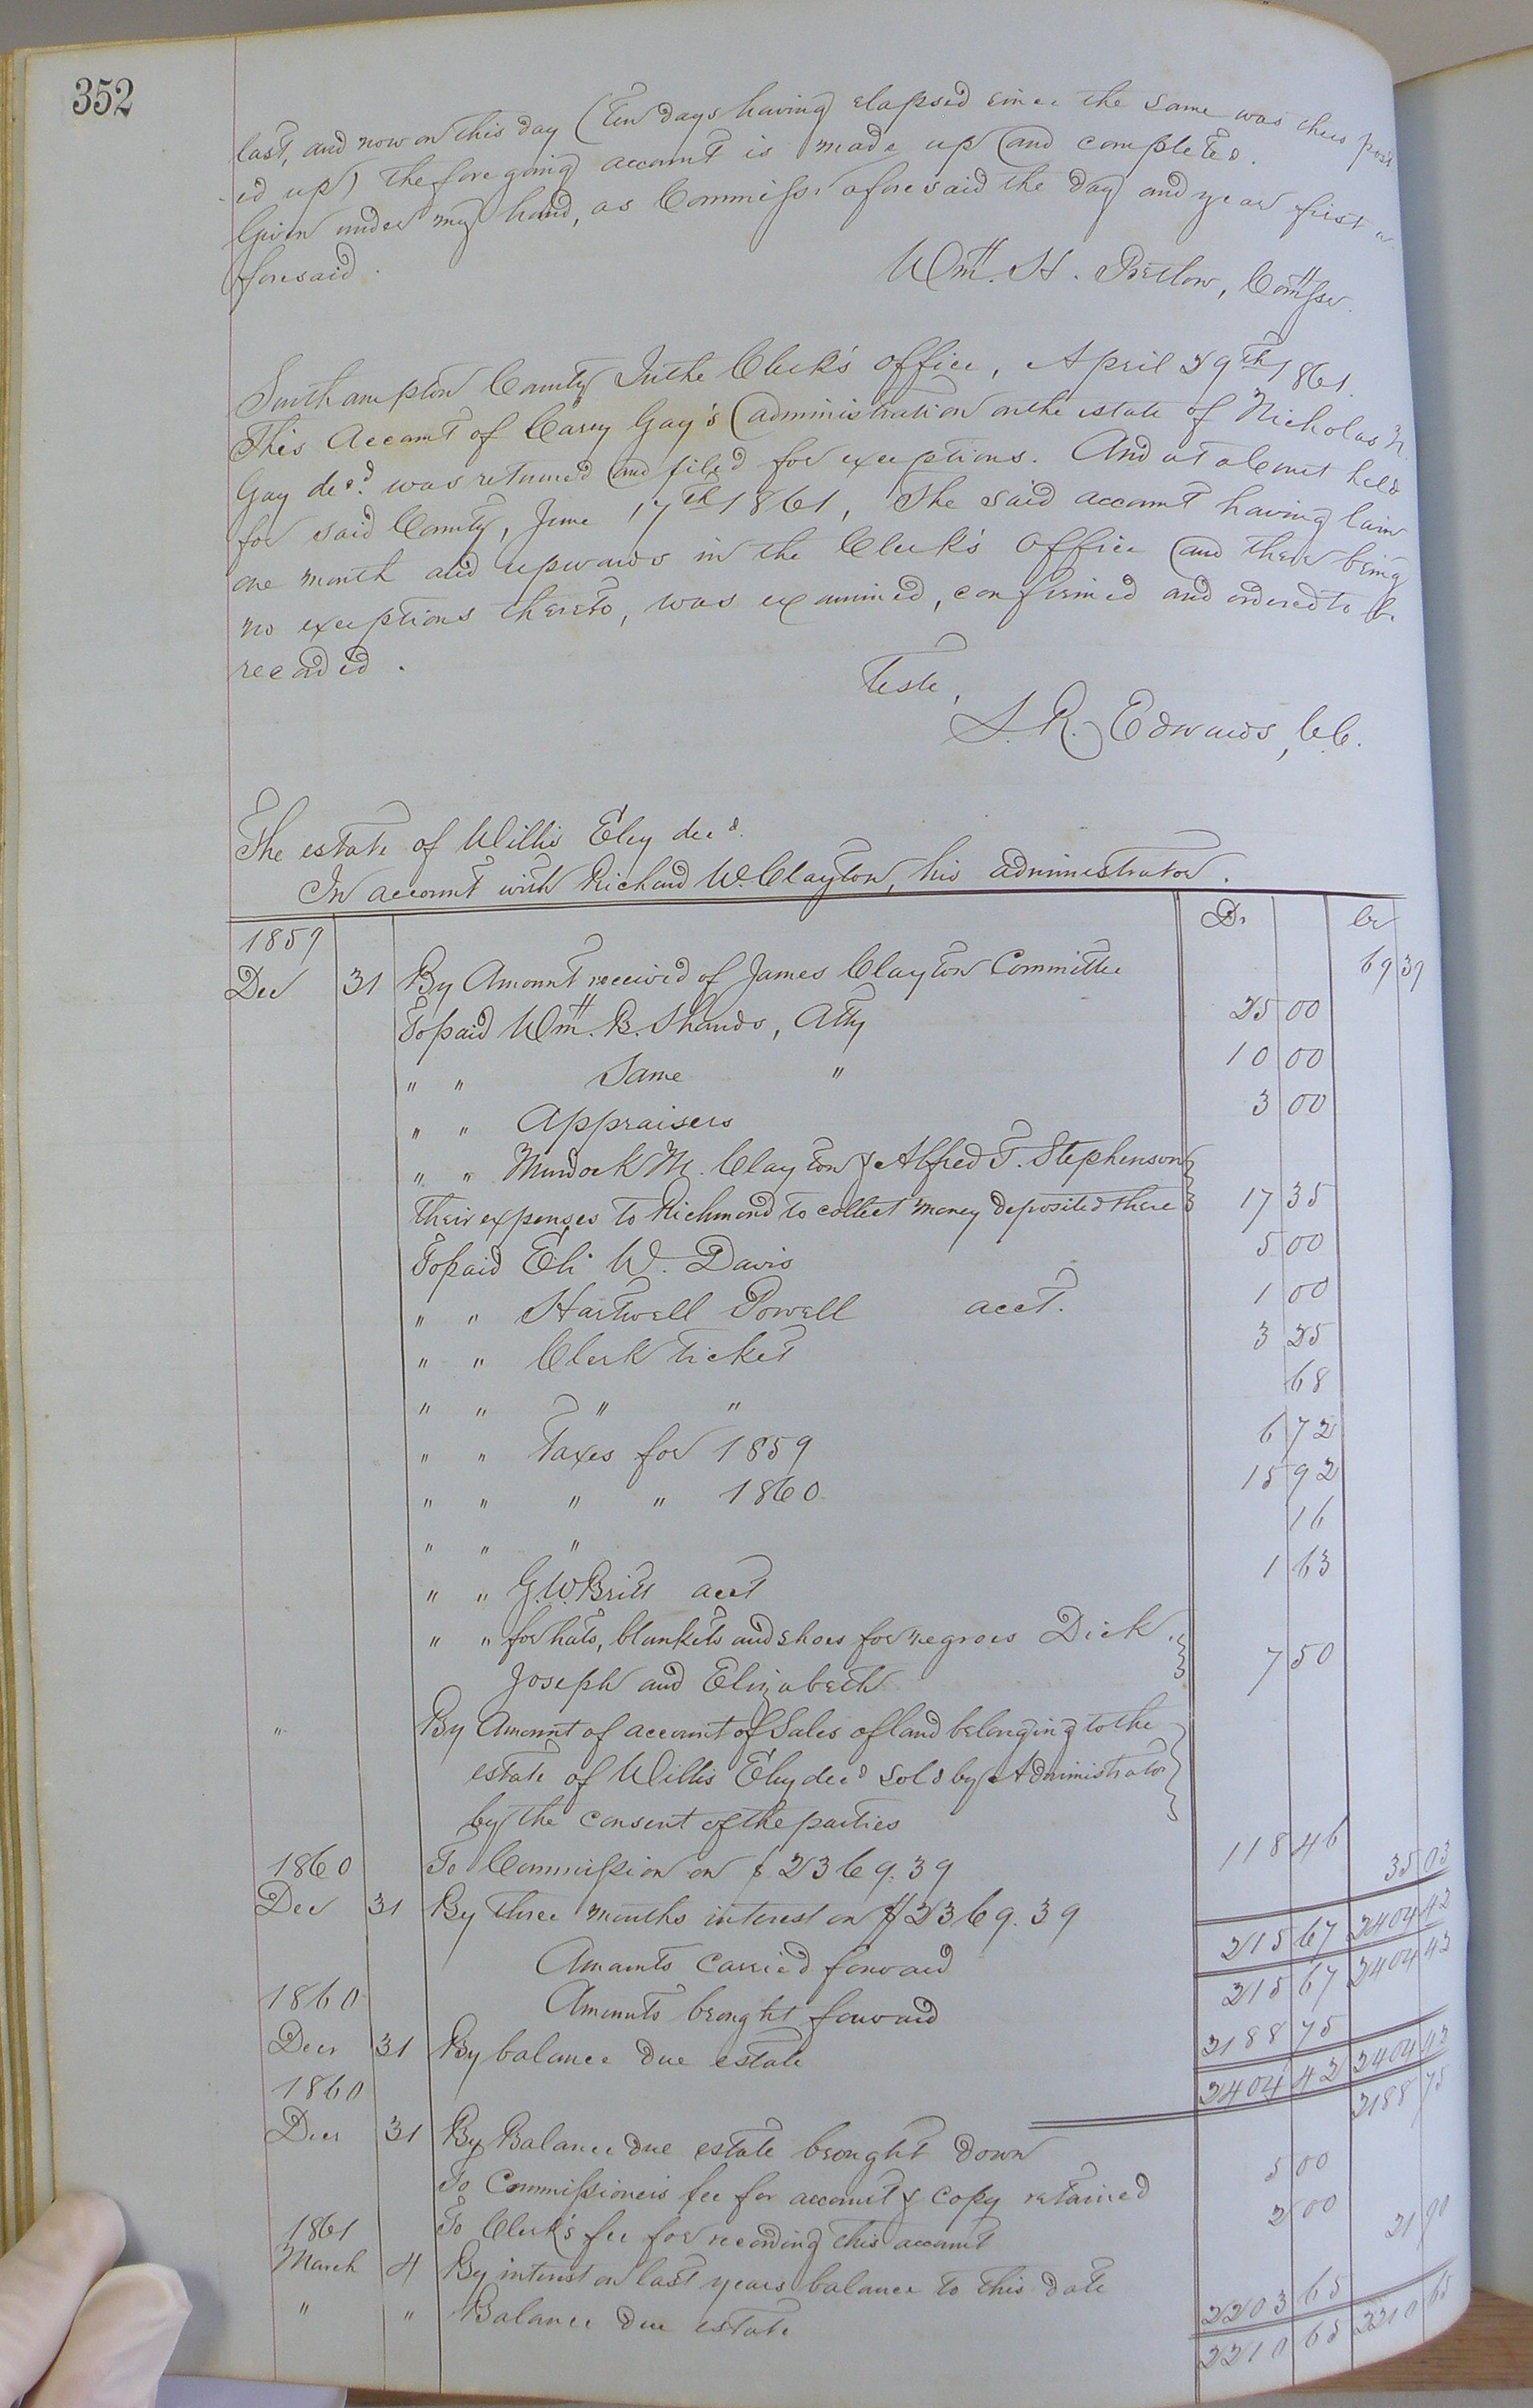 352
last, and now on this day (ten days having elapsed since the same was thus post
ed up) the foregoing account is made up and completed.
Given under my hand, as Commissr aforesaid the day and year first a
foresaid.
Wm. H. Briton, Commssr.
Southampton County In the Clerk's office, April 29th 1861.
This Account of Carey Gay's administration on the estate of Nicholas N.
Gay decd. was returned and filed for exceptions. And at a Court held
for said County, June 17th 1861, The said account having lain
one month and upwards in the Clerk's office and there being
no exceptions thereto, was examined, confirmed and ordered to be
recorded.
Teste,
L. R. Edwards, C.C.
The estate of Willis Eley decd.
In account with Richard W. Clayton, his administrator.
Dr Cr
1859
Dec 31 By Amount received of James Clayton Committee 69 39
To paid Wm. B. Shands, Atty 25 00
" " Same " 10 00
" " Appraisers 3 00
" " Murdock M. Clayton & Alfred T. Stephenson
their expenses to Richmond to collect money deposited there 17 35
To paid Eli W. Davis 5 00
" " Hartwell Powell acct. 1 00
" " Clerk ticket 3 25
" " " " 68
" " Taxes for 1859 6 72
" " " " 1860 15 92
" " " 16
" " G.W. Britt acct 1 63
" " for hats, blankets and shoes for negroes Dick,
Joseph and Elizabeth 7 50
" By Amount of account of Sales of land belonging to the
estate of Willis Eley decd sold by Administrator
by the consent of the parties
1860 To Commission on $2369.39 118 46
Dec 31 By three months interest on $2369.39 35 03
Amounts carried forward 215 67 2404 42
1860 Amounts brought forward 215 67 2404 42
Decr 31 By balance due estate 2188 75
1860 2404 42 2404 42
Decr 31 By Balance due estate brought down 2188 75
To Commissioners fee for account & copy retained 5 00
1861 To Clerk's fee for recording this account 2 00
March 4 By interest on last years balance to this date 21 90
" " Balance due estate 2203 65
2210 65 2210 65